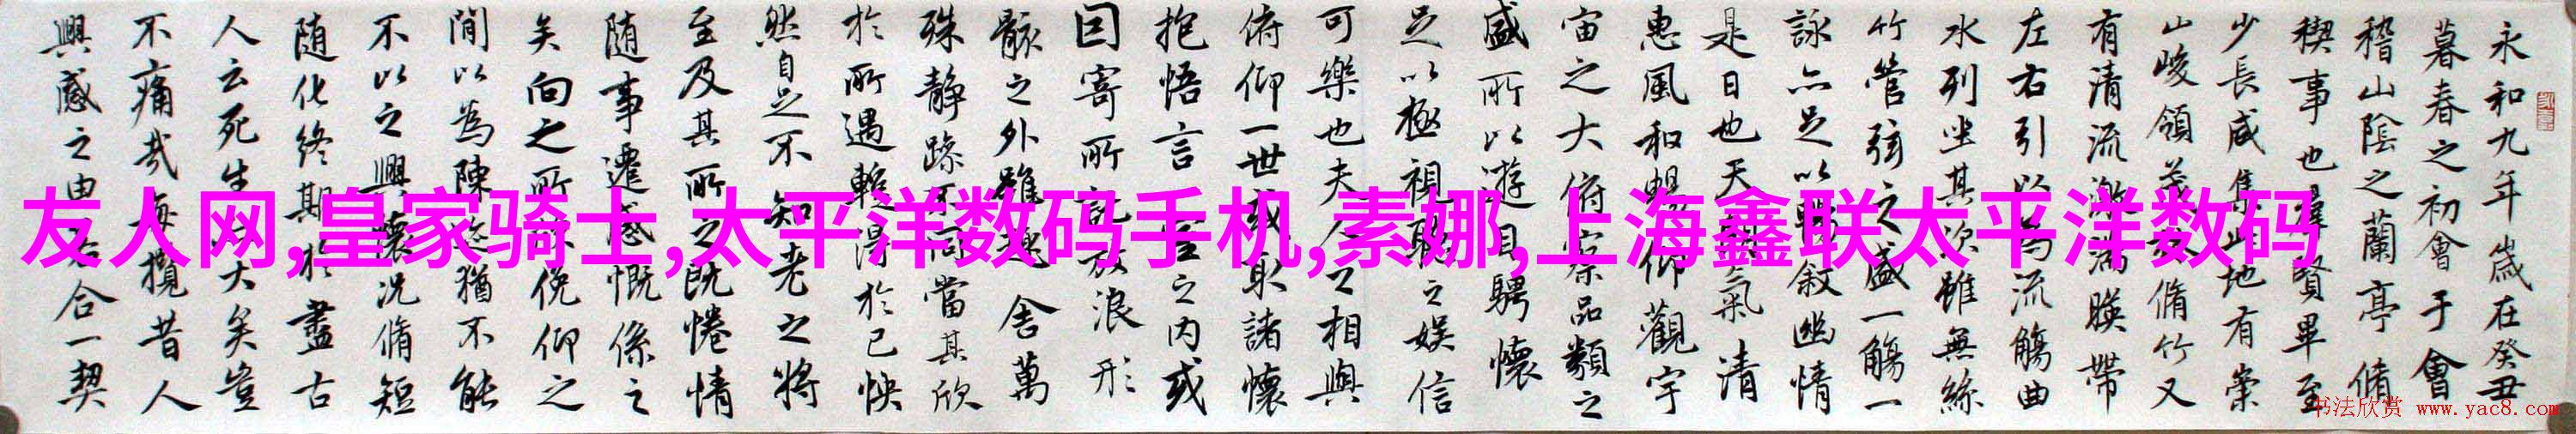 永和九年歲在癸丑
暮春之初會于會
稽山陰之蘭亭脩
稧事也羣賢畢至
少長咸集此地有崇
山峻領茂林脩竹又
有清流激湍暎帶
左右引以為流觴曲
水列坐其次雖無絲
竹管弦之盛一觴一
詠亦足以暢敘幽情
是日也天朗氣清
惠風和暢仰觀宇
宙之大俯察品類之
盛所以遊目騁懷
足以極視聽之娛信
可樂也夫人之相與
俯仰一世或取諸懷
抱悟言一室之內或
因寄所託放浪形
骸之外雖趣舍萬
殊静躁不同當其欣
於所遇暫得於己快
然自足不知老之將
至及其所之既惓情
随事遷感慨係之
矣向之所欣俛仰之
閒以為陳迹猶不能
不以之興懷況脩短
随化終期於盡古
人云死生亦大矣豈
不痛哉每攬昔人
興感之由若合一契
友人网,皇家骑士,太平洋数码手机,素娜,上海鑫联太平洋数码
书法欣赏 www.yac8.com